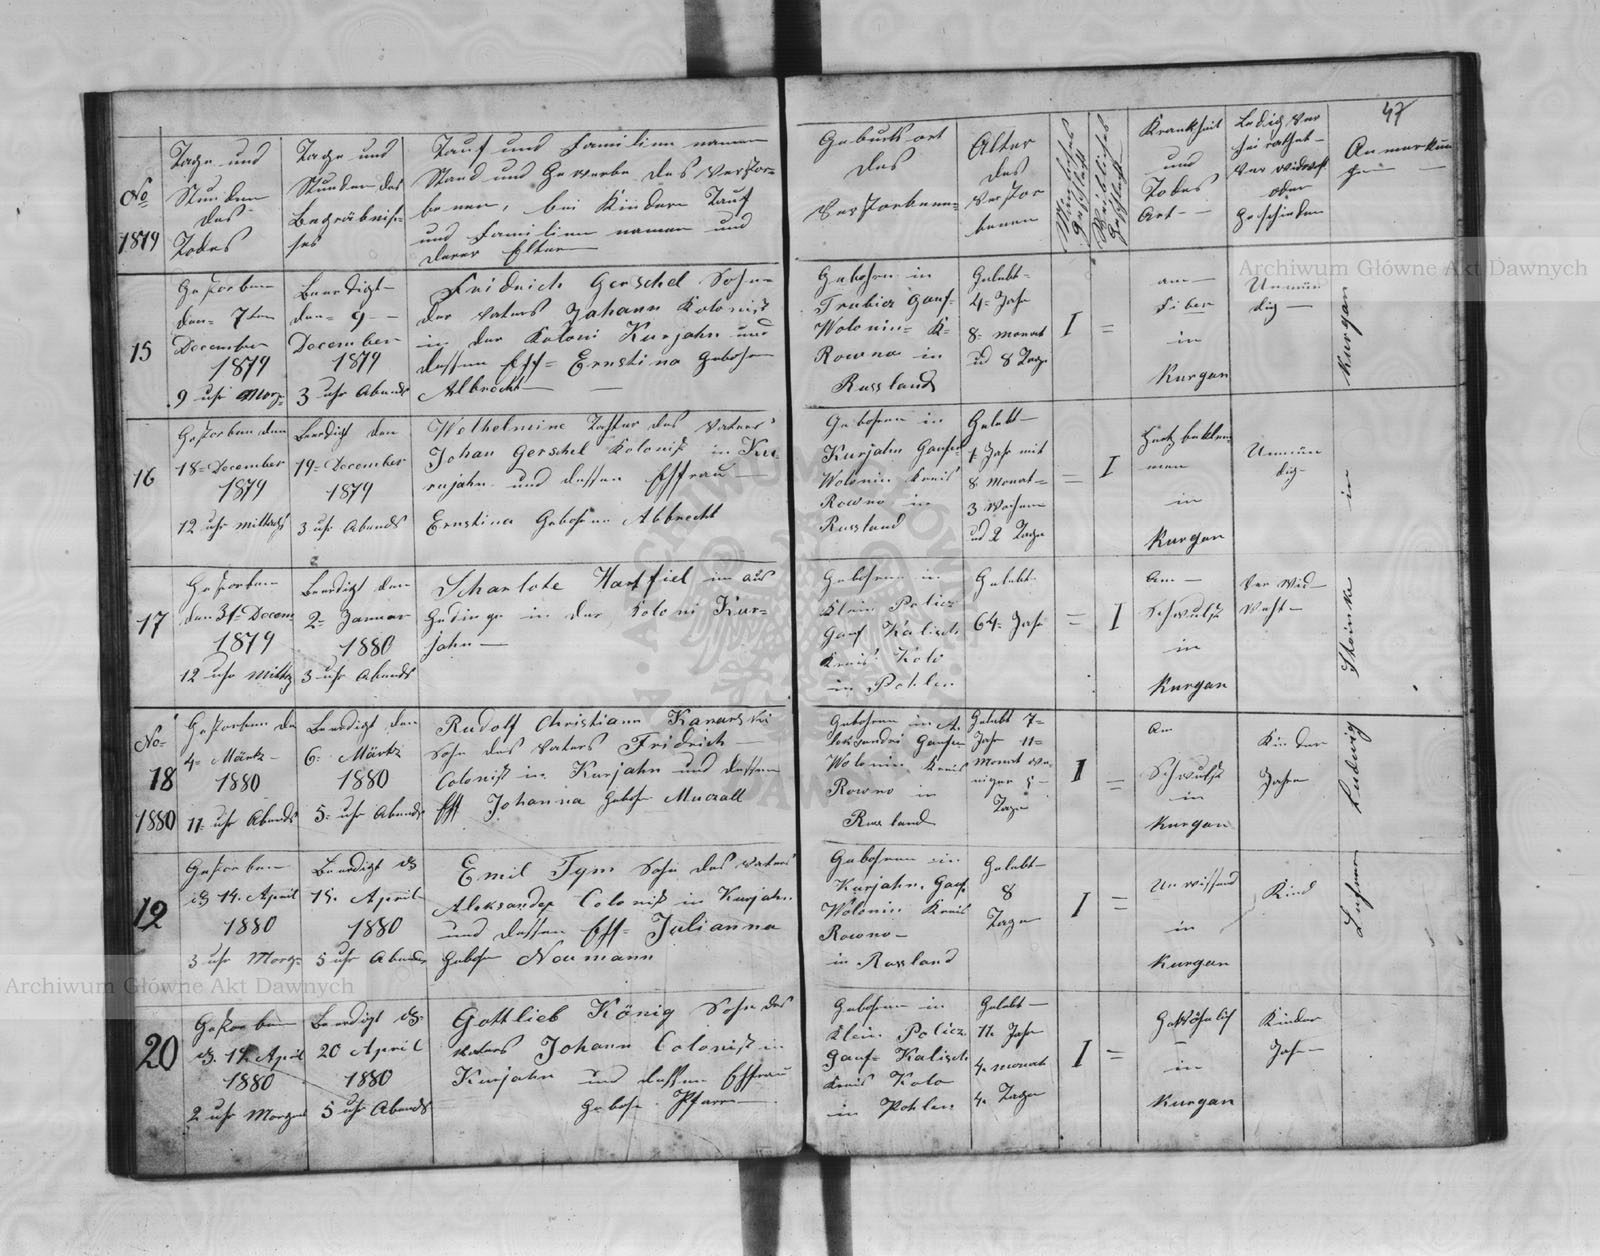 47
No
1879
Tage und
Stunden
des
Todes
Tage und
Stunden des
Begräbniß-
ses
Tauf und Familien namen
Stand und Gewerbe des Verstor=
benen, bei Kindern Tauf
und Familien namen und
derer Eltern
Geburts ort
des
Verstorbenen
Alter
des
Verstor
benen
Männliches
Geschlecht
Weibliches
Geschlecht
Krankheit
und
Todes
Art
Ledig Ver
heirathet
Ver widwet
oder
geschieden
Anmerkun
gen
15
Gestorben
den 7ten
December
1879
9 uhr Morg=
Beerdigt
den 9
December
1879
3 uhr Abends
Fridrich Gerschel Sohn
des Vaters Johann Kolonist
in der Koloni Kurjahn und
dessen Ehf= Ernstina Gebohren
Albrecht
Gebohren in
Trubiez Gouf=
Wolonin= K=
Rowno in
Russland
Gelebt
4= Jahr
8= monat
ud 8 Tage
I =
am
Fiber
in
Kurgan
Unmün
dig
16
Gestorben den
18= December
1879
12 uhr mittags
Beerdigt den
19= December
1879
3 uhr Abends
Welhelmine Tochter des Vaters
Johan Gerschel Kolonist in Ku
rujahn und dessen Ehffrau
Ernstina Gebohren Albrecht
Gebohren in
Kurjahn Goufer
Wolonin Kreis
Rowno in
Russland
Gelebt
1 Jahr mit
8 Monat=
3 Wochen
ud 2 Tage
= I
Hertz beklem
men
in
Kurgan
Unmün
dig
17
Gestorben
den 31= Decem
1879
12 uhr Mittg
Beerdigt den
2= Januar
1880
3 uhr Abends
Scharlote Hartfiel im aus
Gedinge in der Koloni Kur=
jahn
Gebohren in
Klein Policz
Gouf Kalisch
Kreis Kolo
in Pohlen
Gelebt
64= Jahr
= I
Am
Schwulst
in
Kurgan
Ver wid
weht
No
18
1880
Gestorben de
4= Märtz
1880
11= uhr Abends
Beerdigt den
6= Märtz
1880
5= uhr Abends
Rudolf Christiann Kanarski
Sohn des Vaters Fridrich
Colonist in Kurjahn und dessen
Ehf Johanna Geboh Muczall
Gebohren in A
leksandri Goufen
Wolonin Kreis
Rowno in
Russland
Gelebt 7=
Jahr 11=
Monat we
niger 8
Tage
I =
Am
Schwulst
in
Kurgan
Kinder
Jahren
19
Gestorben
d 14. April
1880
3 uhr Morg=
Beerdigt d
15. April
1880
5 uhr Abends
Emil Tym Sohn des Vaters
Aleksander Colonist in Kurjahn
und dessen Ehf= Julianna
Geboh Neumann
Gebohren in
Kurjahn Gouf
Wolonin Kreis
Rowno
in Russland
Gelebt
8
Tage
I =
Unwissend
in
Kurgan
Kind
20
Gestorben
d. 17. April
1880
2 uhr Morgens
Beerdigt d
20 April
1880
5 uhr Abends
Gottlieb König Sohn des
Vaters Johann Colonist in
Kurjahn und dessen Ehffrau
Geboh Pfarr
Gebohren in
Klein Policz
Gouf= Kalisch
Kreis Kolo
in Pohlen
Gelebt
11. Jahr
4. monat
4. Tage
I =
Gewöhnlich
in
Kurgan
Kinder
Jahr
Lehrer Ludwig Steinke in Kurgan
Archiwum Główne Akt Dawnych
Archiwum Główne Akt Dawnych